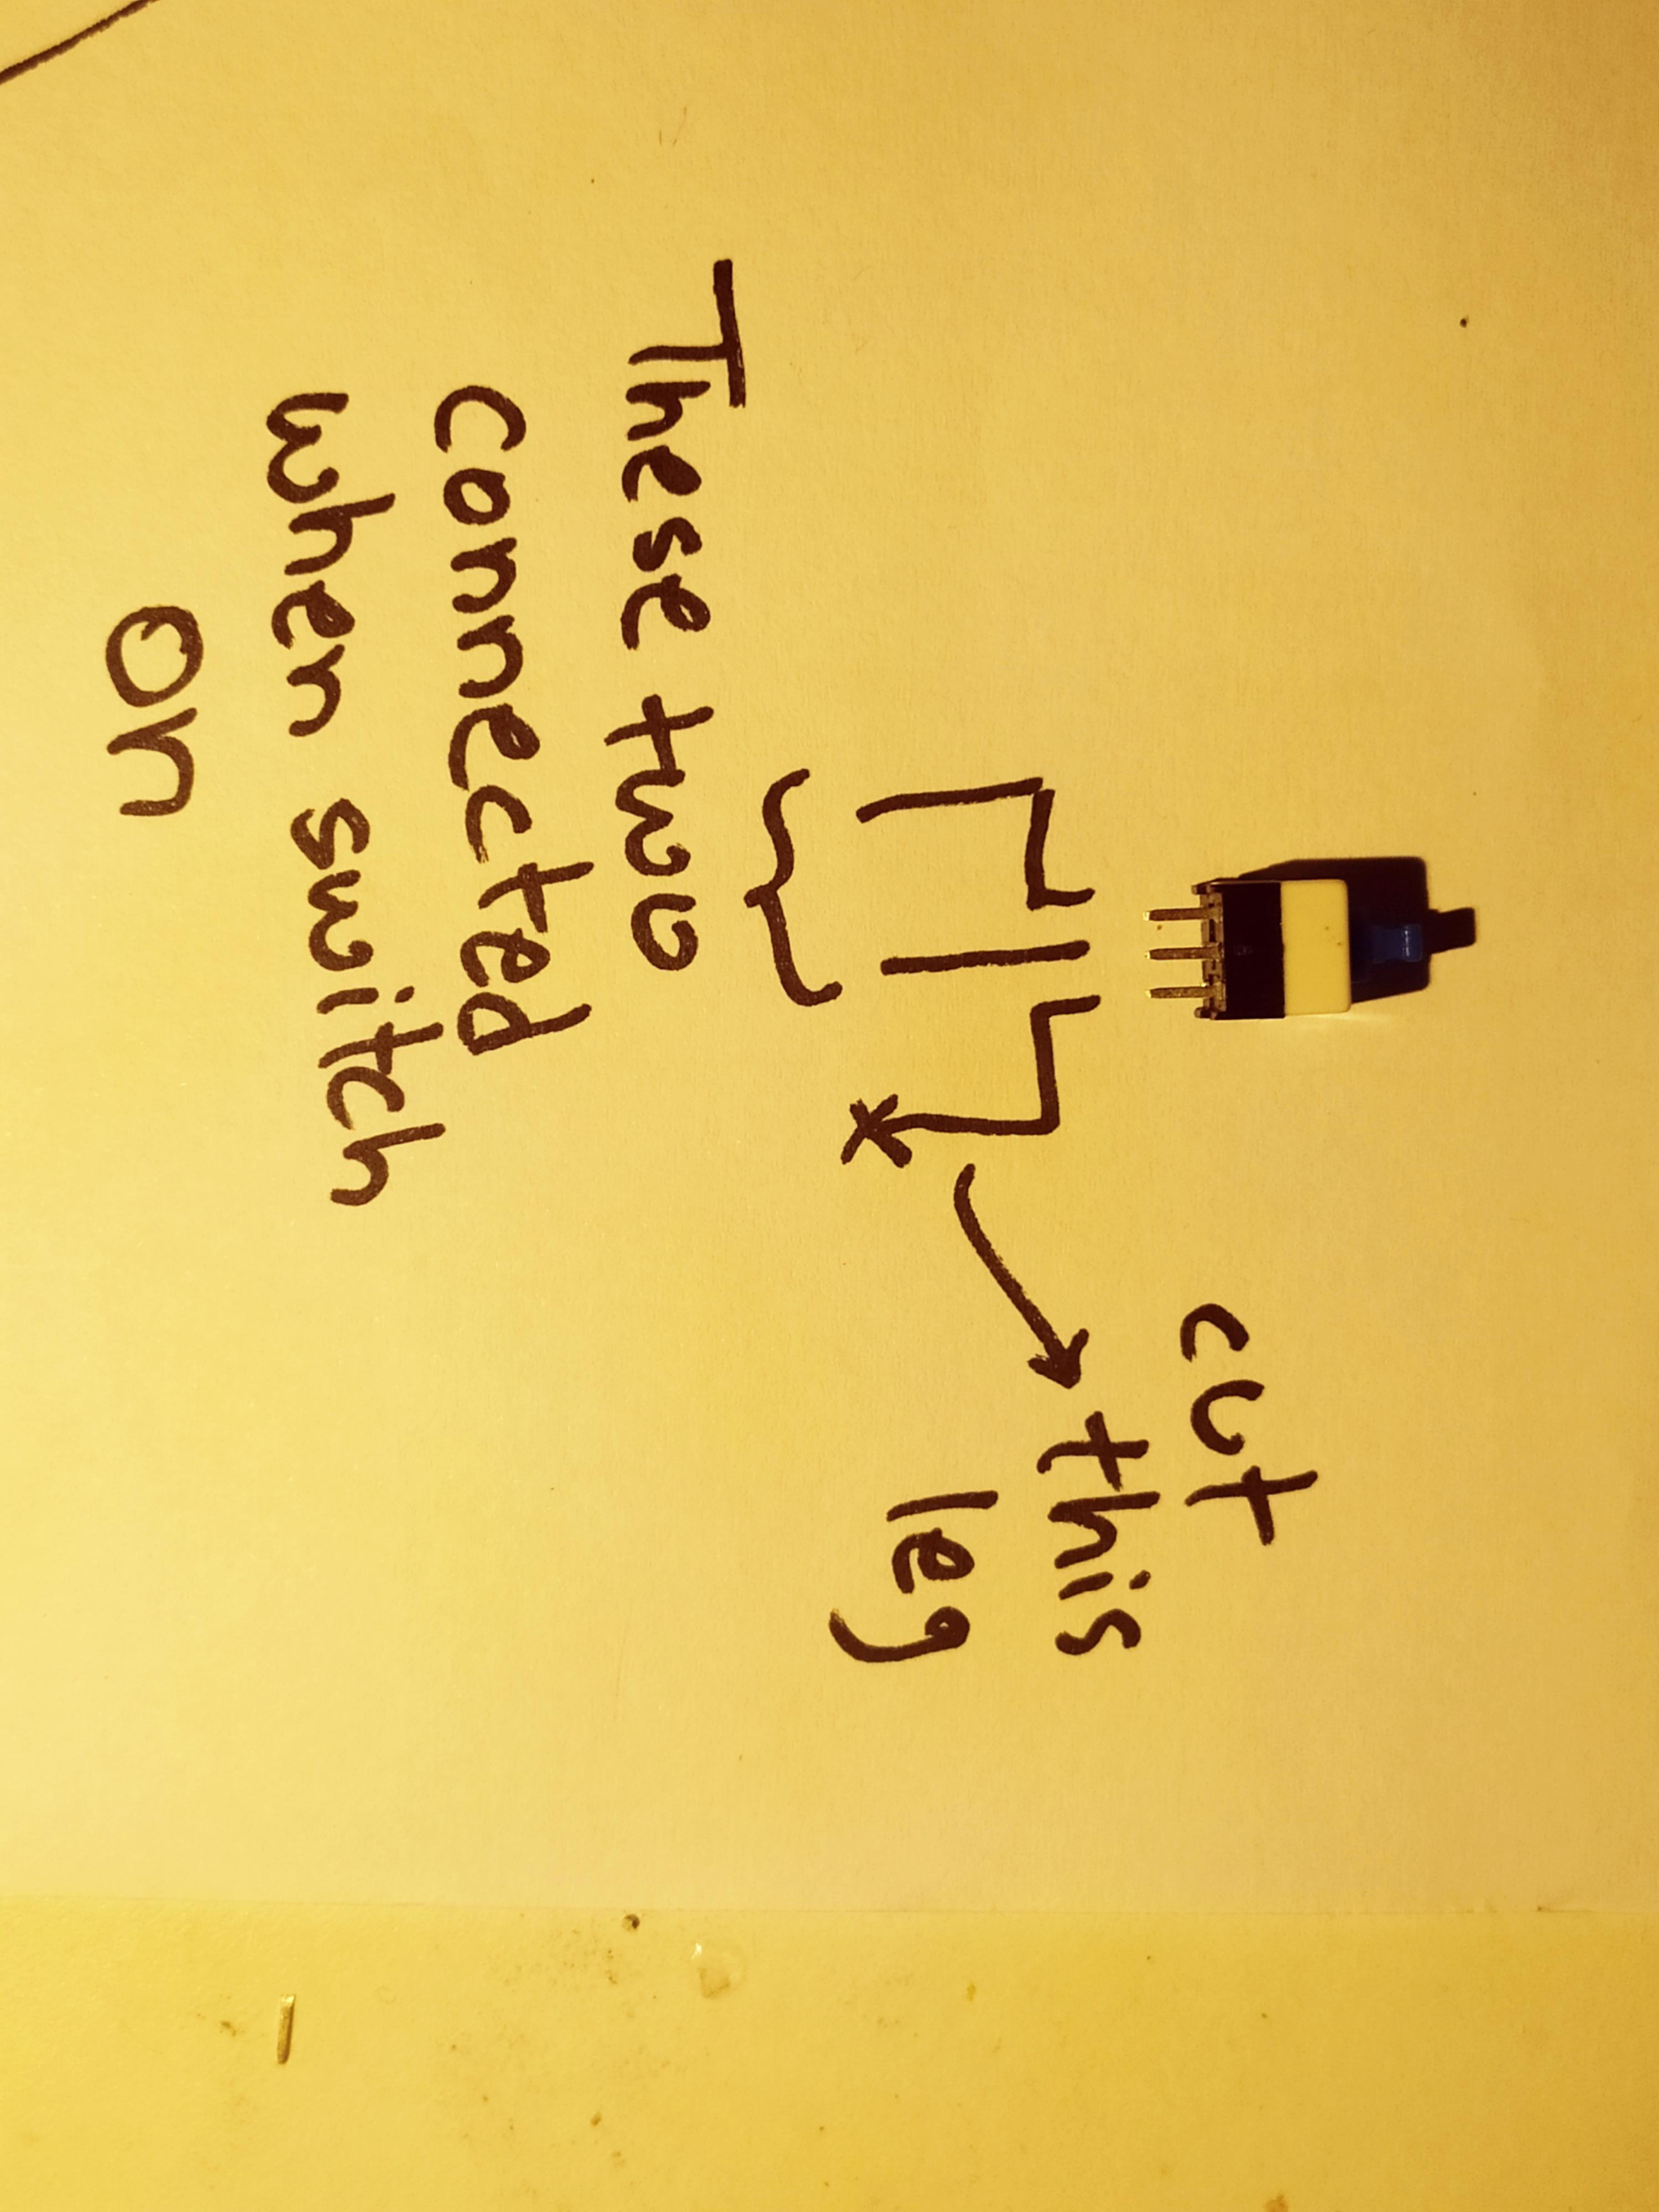 cut
this
leg
These two
connected
when switch
on